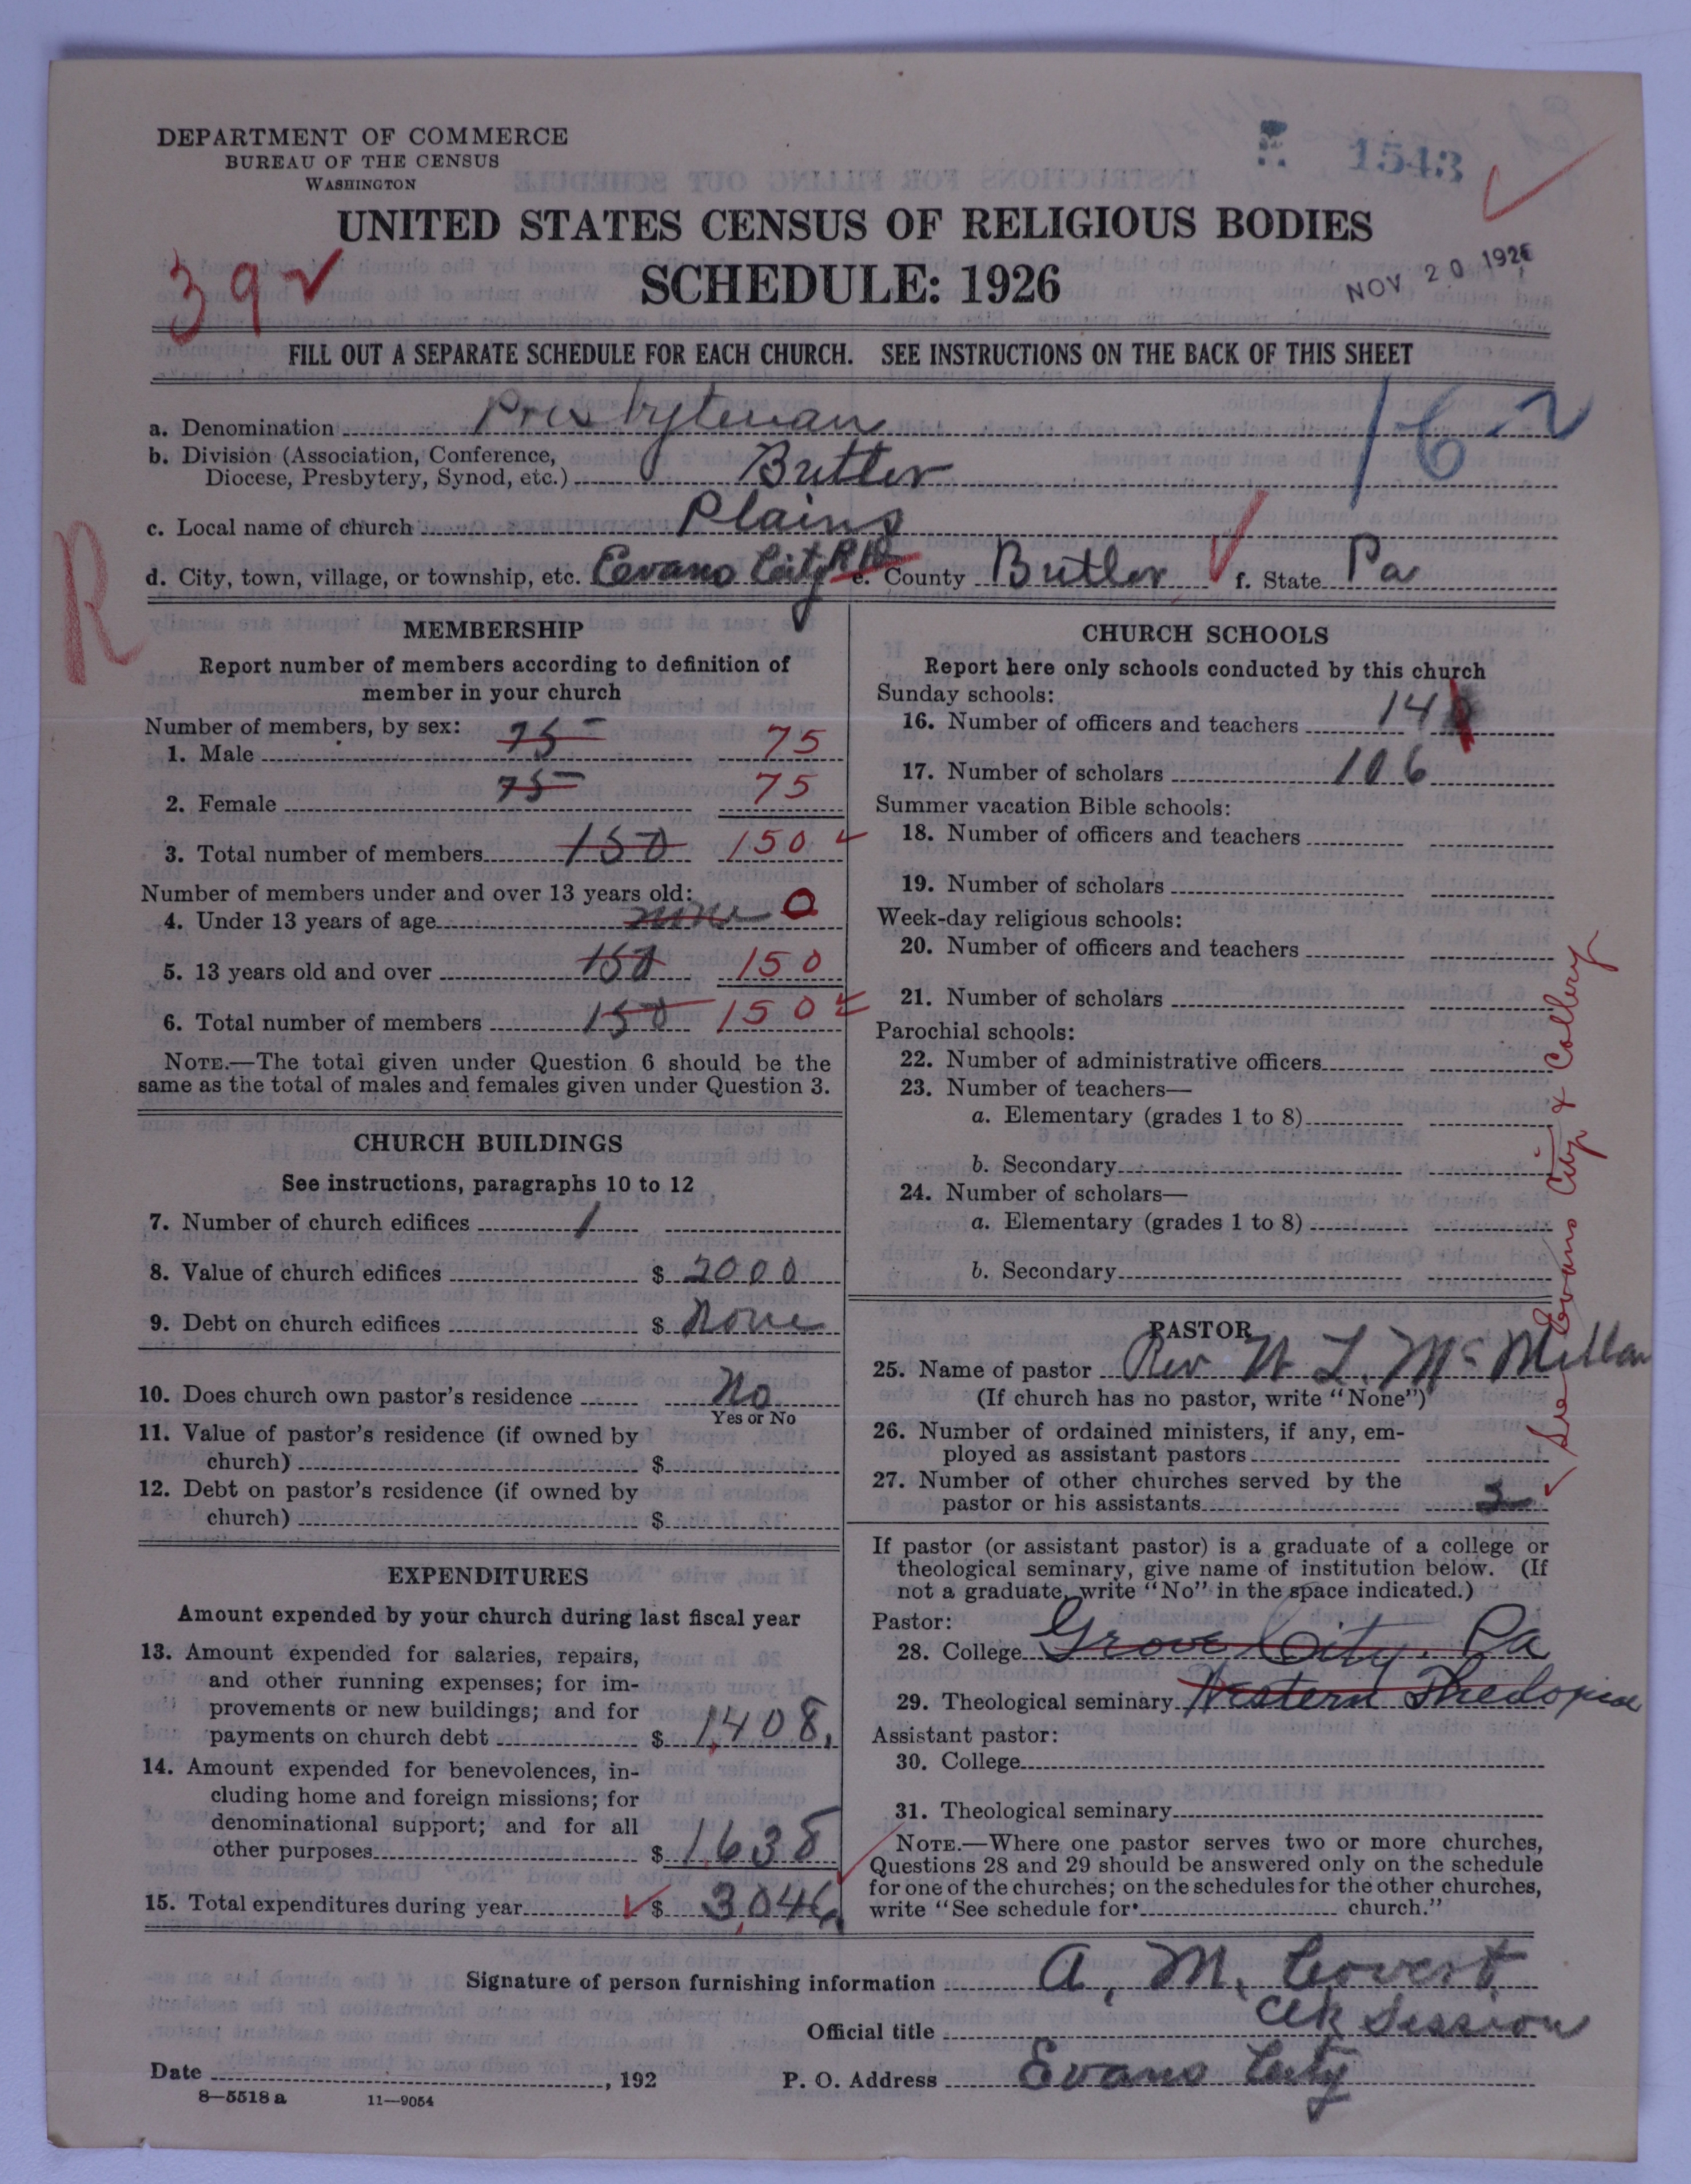 DEPARTMENT OF COMMERCE
BUREAU OF THE CENSUS
WASHINGTON
1543
UNITED STATES CENSUS OF RELIGIOUS BODIES
SCHEDULE: 1926
NOV 20 1926
39
FILL OUT A SEPARATE SCHEDULE FOR EACH CHURCH. SEE INSTRUCTIONS ON THE BACK OF THIS SHEET
a. Denomination Presbyterian
16
b. Division (Association, Conference,
Diocese, Presbytery, Synod, etc.) Butler
c. Local name of church Plains
d. City, town, village, or township, etc. Eevans City RD e. County Butler f. State Pa
R
MEMBERSHIP
Report number of members according to definition of
member in your church
Number of members, by sex:
1. Male 75 75
2. Female 75 75
3. Total number of members 150 150
Number of members under and over 13 years old:
4. Under 13 years of age none 0
5. 13 years old and over 150 150
6. Total number of members 150 150
NOTE.—The total given under Question 6 should be the
same as the total of males and females given under Question 3.
CHURCH BUILDINGS
See instructions, paragraphs 10 to 12
7. Number of church edifices 1
8. Value of church edifices $ 2000
9. Debt on church edifices $ None
10. Does church own pastor's residence No
Yes or No
11. Value of pastor's residence (if owned by
church) $
12. Debt on pastor's residence (if owned by
church) $
EXPENDITURES
Amount expended by your church during last fiscal year
13. Amount expended for salaries, repairs,
and other running expenses; for im-
provements or new buildings; and for
payments on church debt $ 1,408.
14. Amount expended for benevolences, in-
cluding home and foreign missions; for
denominational support; and for all
other purposes $ 1,638
15. Total expenditures during year $ 3,046
CHURCH SCHOOLS
Report here only schools conducted by this church
Sunday schools:
16. Number of officers and teachers 14
17. Number of scholars 106
Summer vacation Bible schools:
18. Number of officers and teachers
19. Number of scholars
Week-day religious schools:
20. Number of officers and teachers
21. Number of scholars
Parochial schools:
22. Number of administrative officers
23. Number of teachers—
a. Elementary (grades 1 to 8)
b. Secondary
24. Number of scholars—
a. Elementary (grades 1 to 8)
b. Secondary
See Evans City & Callery
PASTOR
25. Name of pastor Rev W L. Mc Millan
(If church has no pastor, write "None")
26. Number of ordained ministers, if any, em-
ployed as assistant pastors
27. Number of other churches served by the
pastor or his assistants 2
If pastor (or assistant pastor) is a graduate of a college or
theological seminary, give name of institution below. (If
not a graduate, write "No" in the space indicated.)
Pastor:
28. College Grove City, Pa
29. Theological seminary Western Theological
Assistant pastor:
30. College
31. Theological seminary
NOTE.—Where one pastor serves two or more churches,
Questions 28 and 29 should be answered only on the schedule
for one of the churches; on the schedules for the other churches,
write "See schedule for church."
Signature of person furnishing information A. M. Covert
Official title Clk Session
Date , 192 P. O. Address Evans City
8—5518 a 11—9054